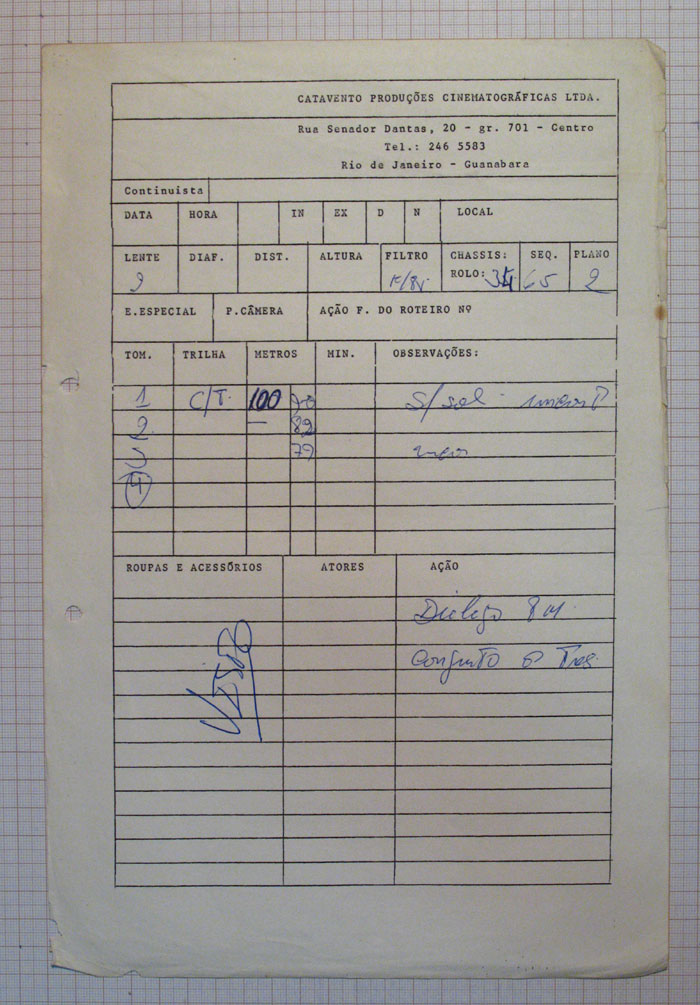 CATAVENTO PRODUÇÕES CINEMATOGRÁFICAS LTDA.
Rua Senador Dantas, 20 - gr. 701 - Centro
Tel.: 246 5583
Rio de Janeiro - Guanabara
Continuista
DATA HORA IN EX D N LOCAL
LENTE DIAF. DIST. ALTURA FILTRO CHASSIS: SEQ. PLANO
ROLO: 65 2
E.ESPECIAL P.CÂMERA AÇÃO F. DO ROTEIRO Nº
TOM. TRILHA METROS MIN. OBSERVAÇÕES:
1 C/T. 100 70 S/sol
2 — 82
3 79
4
ROUPAS E ACESSÓRIOS ATORES AÇÃO
Dialogo
Conjunto